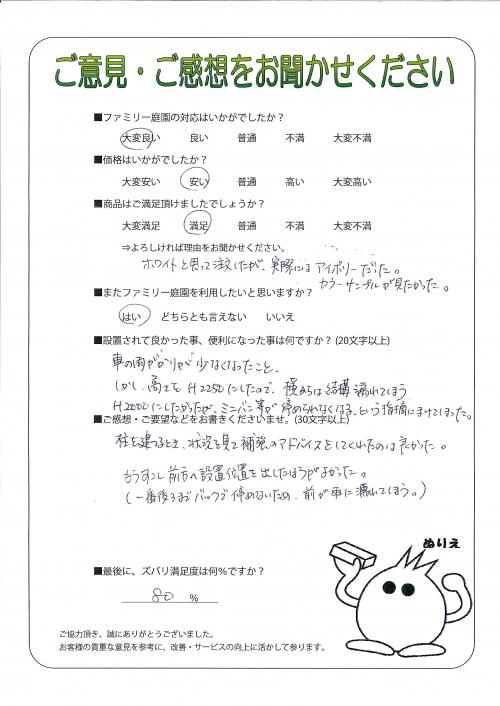 ご意見・ご感想をお聞かせください
■ファミリー庭園の対応はいかがでしたか？
大変良い 良い 普通 不満 大変不満
■価格はいかがでしたか？
大変安い 安い 普通 高い 大変高い
■商品はご満足頂けましたでしょうか？
大変満足 満足 普通 不満 大変不満
⇒よろしければ理由をお聞かせください。
ホワイトと思って注文したが、実際にはアイボリーだった。
カラーサンプルが見たかった。
■またファミリー庭園を利用したいと思いますか？
はい どちらとも言えない いいえ
■設置されて良かった事、便利になった事は何ですか？(20文字以上)
車の雨がかりが少なくなったこと、
しかし、高さをH2250にしたので、横からは結構濡れてしまう
H2000にしたかったが、ミニバン等が停められなくなる、という指摘にまけてしまった。
■ご感想・ご要望などをお書きくださいませ。(30文字以上)
柱を建てるとき、状況を見て補強のアドバイスをしてくれたのは良かった。
もうすこし前方へ設置位置を出したほうがよかった。
(一番後ろまでバックで停めないため、前が車に濡れてしまう。)
ぬりえ
■最後に、ズバリ満足度は何％ですか？
80 ％
ご協力頂き、誠にありがとうございました。
お客様の貴重な意見を参考に、改善・サービスの向上に活かして参ります。